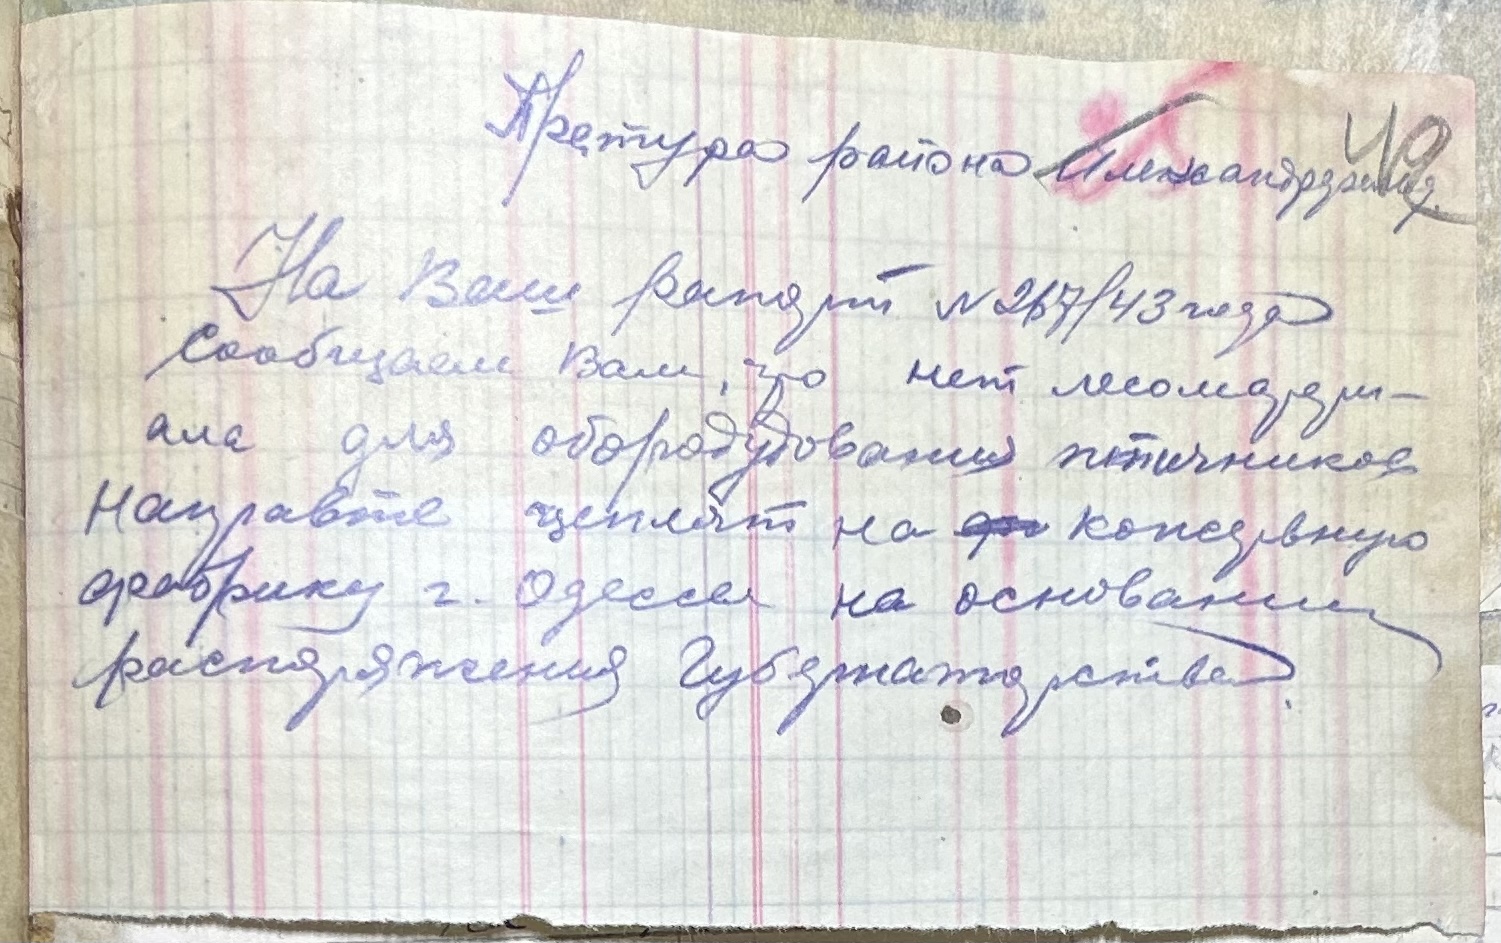 Претура района Александрфельд.
49
На Ваш рапорт N 267/43 года
сообщаем Вам, что нет лесоматери-
ала для оборудудования птичников
Направте цеплят на консервную
фабрику г. Одессы на основании
распоряжения Губернаторства.